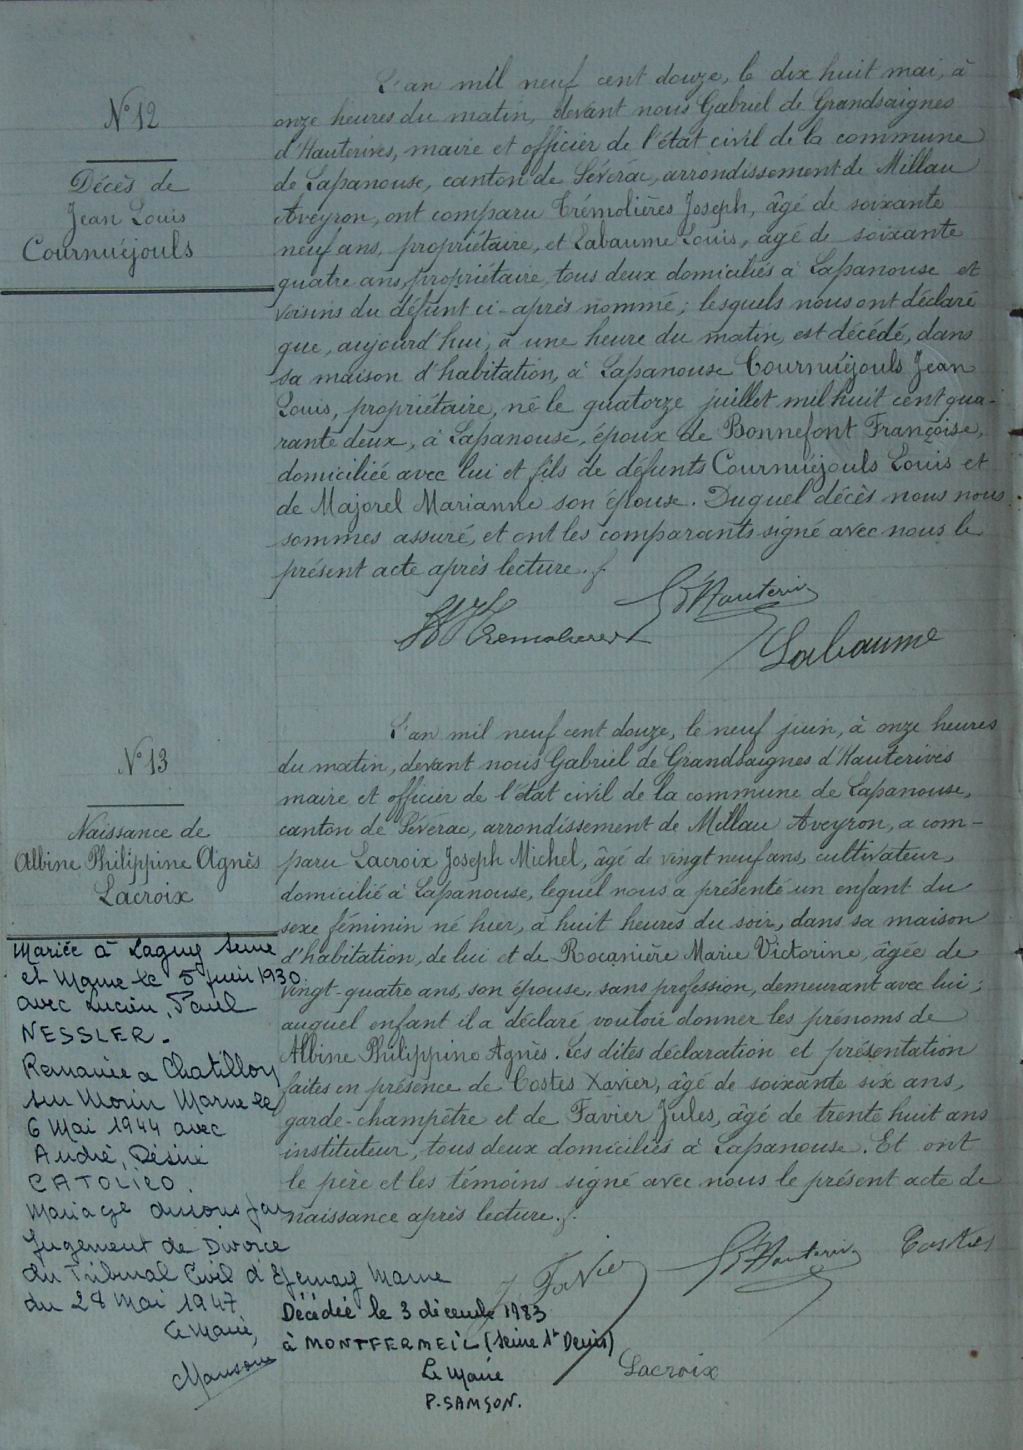 N° 12
Décès de
Jean Louis
Cournuéjouls
L'an mil neuf cent douze, le dix huit mai, à
onze heures du matin, devant nous Gabriel de Grandsaignes
d'Hauterives, maire et officier de l'état civil de la commune
de Lapanouse, canton de Sévérac, arrondissement de Millau
Aveyron, ont comparu Trémolières Joseph, âgé de soixante
neuf ans, propriétaire, et Labaume Louis, âgé de soixante
quatre ans, propriétaire, tous deux domiciliés à Lapanouse et
voisins du défunt ci-après nommé; lesquels nous ont déclaré
que, aujourd'hui, à une heure du matin, est décédé, dans
sa maison d'habitation, à Lapanouse Cournuéjouls Jean
Louis, propriétaire, né le quatorze juillet mil huit cent qua-
rante deux, à Lapanouse, époux de Bonnefont Françoise,
domiciliée avec lui et fils de défunts Cournuéjouls Louis et
de Majorel Marianne son épouse. Duquel décès nous nous
sommes assuré, et ont les comparants signé avec nous le
présent acte après lecture.
Tremolieres
G d'Hauterives
Labaume
N° 13
Naissance de
Albine Philippine Agnès
Lacroix
L'an mil neuf cent douze, le neuf juin, à onze heures
du matin, devant nous Gabriel de Grandsaignes d'Hauterives
maire et officier de l'état civil de la commune de Lapanouse,
canton de Sévérac, arrondissement de Millau Aveyron, a com-
paru Lacroix Joseph Michel, âgé de vingt neuf ans, cultivateur,
domicilié à Lapanouse, lequel nous a présenté un enfant du
sexe féminin né hier, à huit heures du soir, dans sa maison
d'habitation, de lui et de Rocanière Marie Victorine, âgée de
vingt-quatre ans, son épouse, sans profession, demeurant avec lui;
auquel enfant il a déclaré vouloir donner les prénoms de
Albine Philippine Agnès. Les dites déclaration et présentation
faites en présence de Costes Xavier, âgé de soixante six ans,
garde-champêtre et de Favier Jules, âgé de trente huit ans
instituteur, tous deux domiciliés à Lapanouse. Et ont
le père et les témoins signé avec nous le présent acte de
naissance après lecture.
J. Favier
G d'Hauterives
Costes
Lacroix
Mariée à Lagny Seine
et Marne le 5 juin 1930
avec Lucien, Paul
NESSLER.
Remariée à Chatillon
sur Morin Marne le
6 Mai 1944 avec
André, Désiré
CATOLICO.
Mariage dissous par
Jugement de Divorce
du Tribunal Civil d'Epernay Marne
du 28 Mai 1947
Le Maire,
Décédée le 3 décembre 1983
à MONTFERMEIL (Seine St Denis)
Le Maire
P. SAMSON.